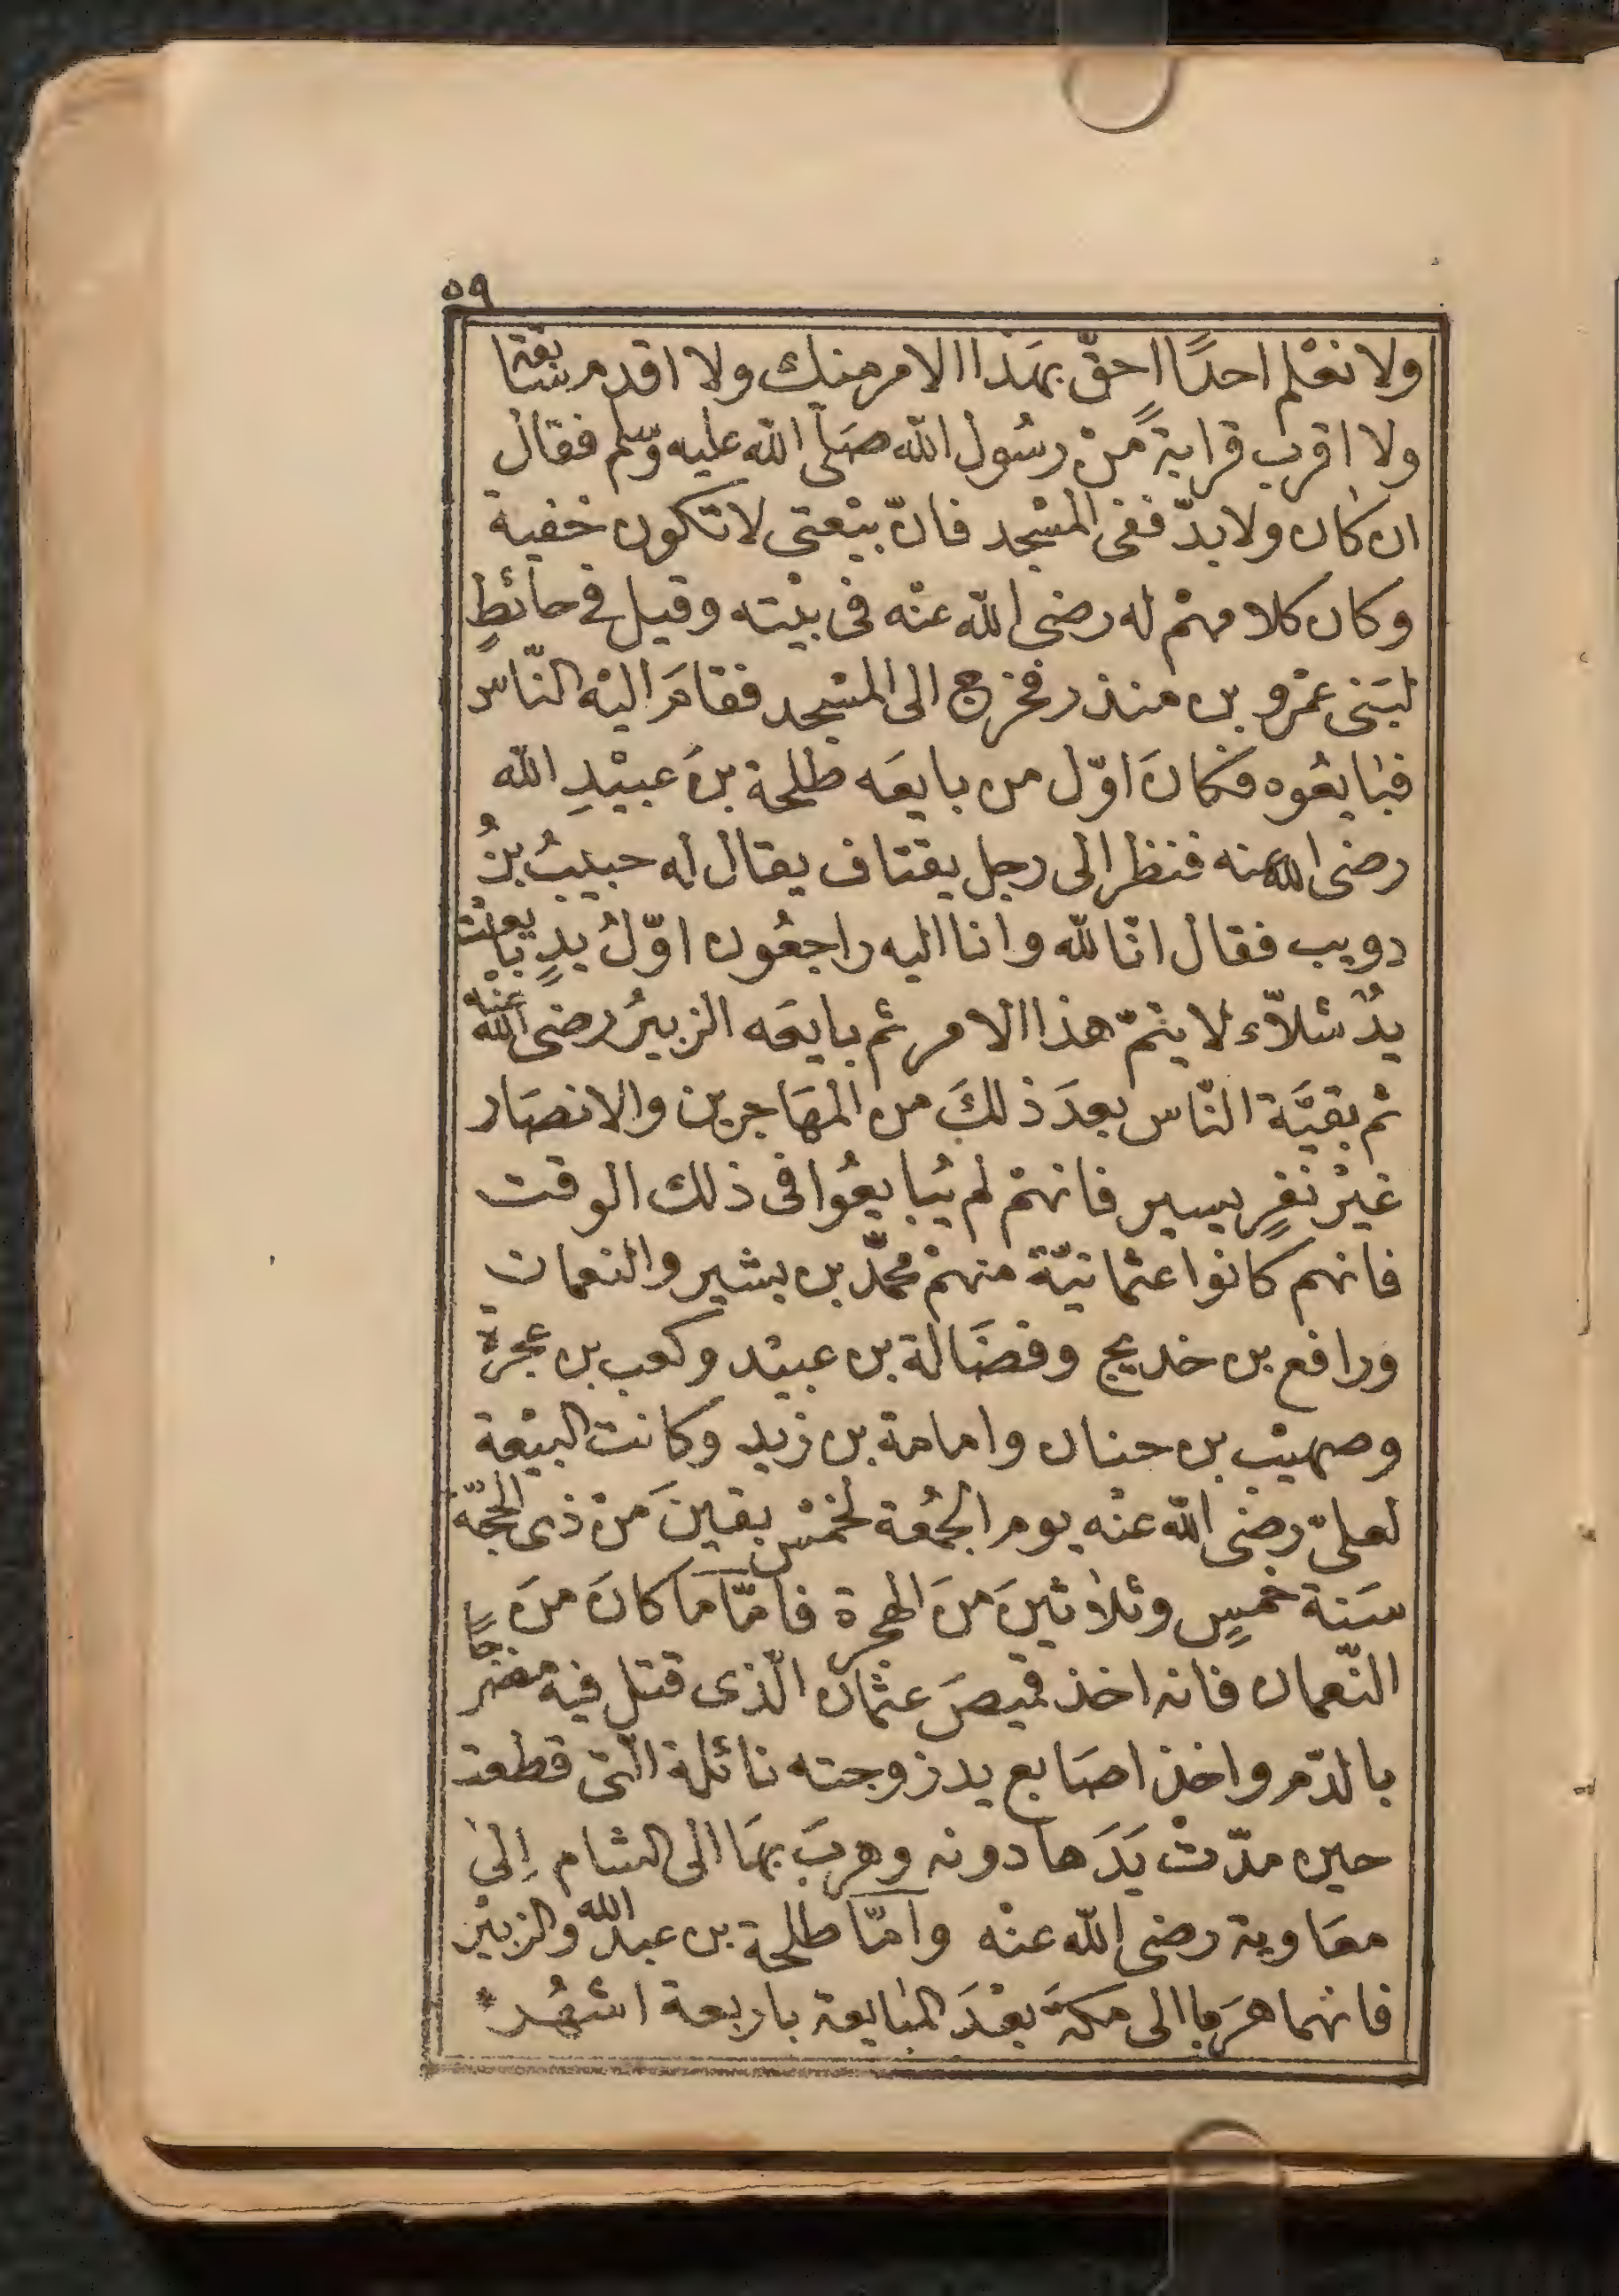 ٥٩
ولا نعْلم احدًا احقّ بهَذا الامر منك ولا اقدم سَابقة
ولا اقرب قرابةً منْ رسُول الله صَلّى الله عليه وسّلم فقال
ان كان ولا بدّ ففى المسْجد فانّ بيْعتى لا تكون خفية
وكان كلامهمْ له رضى الله عنْه فى بيْته وقيل فى حائطٍ
لبَنى عمْرو بن منذر فخرج الى المسْجد فقامَ اليْه النّاس
فبَايعُوه فكانَ اوّل من بايعَه طلحة بنَ عبيْدِ الله
رضى الله عنه فنظر الى رجل يقتاف يقال له حبيبُ بنُ
دويب فقال انّا لله وانا اليه راجعُون اوّلُ يدٍ بايعْت
يدٌ شلاّء لا يتمّ هذا الامر ثم بايعَه الزبيرُ رضى الله عنْه
ثم بقيَّة النّاس بعدَ ذلكَ من المهَاجرين والانصَار
غيْرُ نفرٍ يسير فانهمْ لم يُبايعُوا فى ذلك الوقت
فانهم كانوا عثمانيّة منهمْ محمّد بن بشير والنعمان
ورافع بن خديج وفضَالة بن عبيْد وكعب بن عجرة
وصهيْب بن حنان وامامة بن زيد وكانت البيْعة
لعلىّ رضى الله عنْه يوم الجمُعة لخمْس بقينَ منْ ذى الحجّة
سَنة خمسٍ وثلاثينَ منَ الهجرة فامّا مَا كانَ منَ
النّعمان فانه اخذ قميصَ عثمان الّذى قتل فيه مضرّجًا
بالدّم واخذ اصَابع يد زوجته نائلة الّتى قطعت
حين مدّتْ يَدَها دونه وهربَ بهَا الى الشام إلىٰ
معَاوية رضى الله عنْه وامّا طلحة بن عبد الله والزبيْر
فانهما هَربا الى مكةَ بعْدَ المبَايعة باربعة اشهُر *